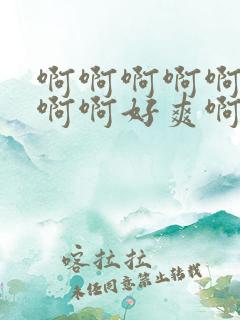 啊啊啊啊啊
啊啊好爽啊
喀拉拉
未经同意禁止转载